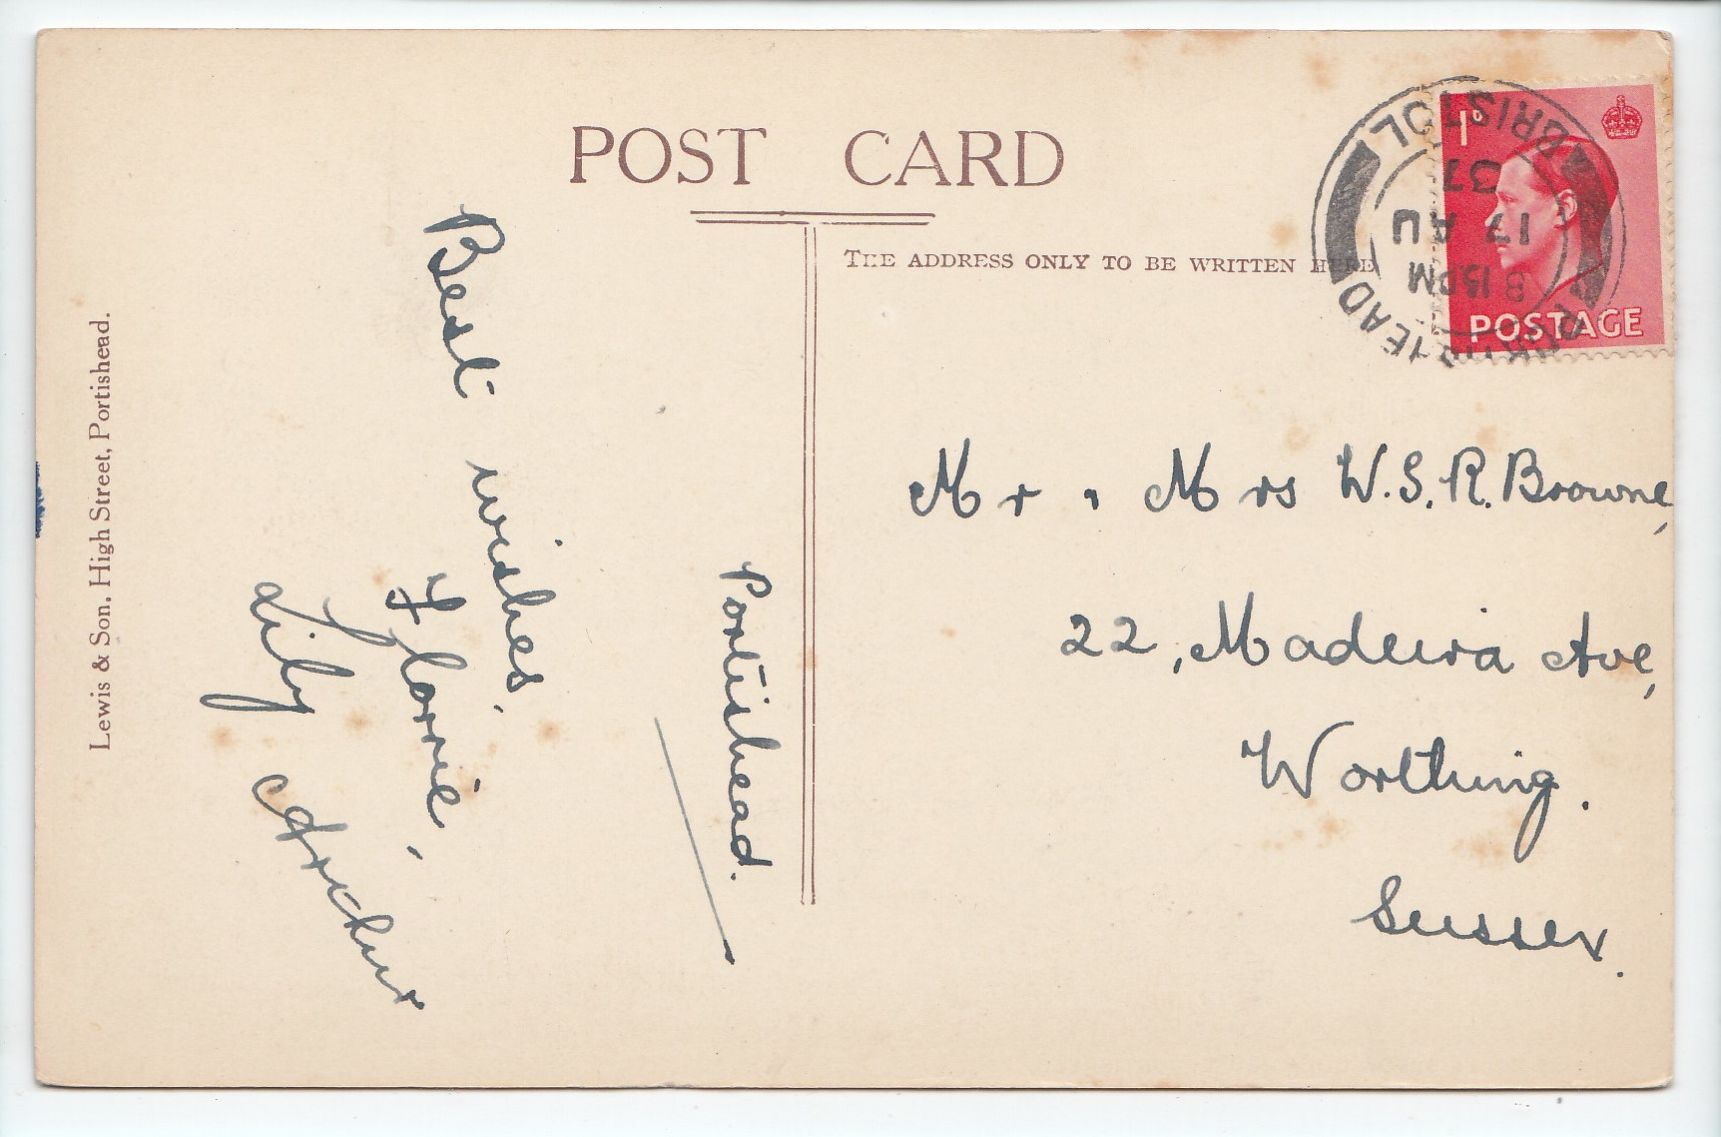 POST CARD
THE ADDRESS ONLY TO BE WRITTEN HERE
Lewis & Son, High Street, Portishead.
1d
POSTAGE
PORTISHEAD
8 15 PM
17 AU
37
BRISTOL
Portishead.
Best wishes,
Florrie,
Lily
Arthur
Mr & Mrs W.S.R. Browne,
22, Madeira Ave,
Worthing.
Sussex.